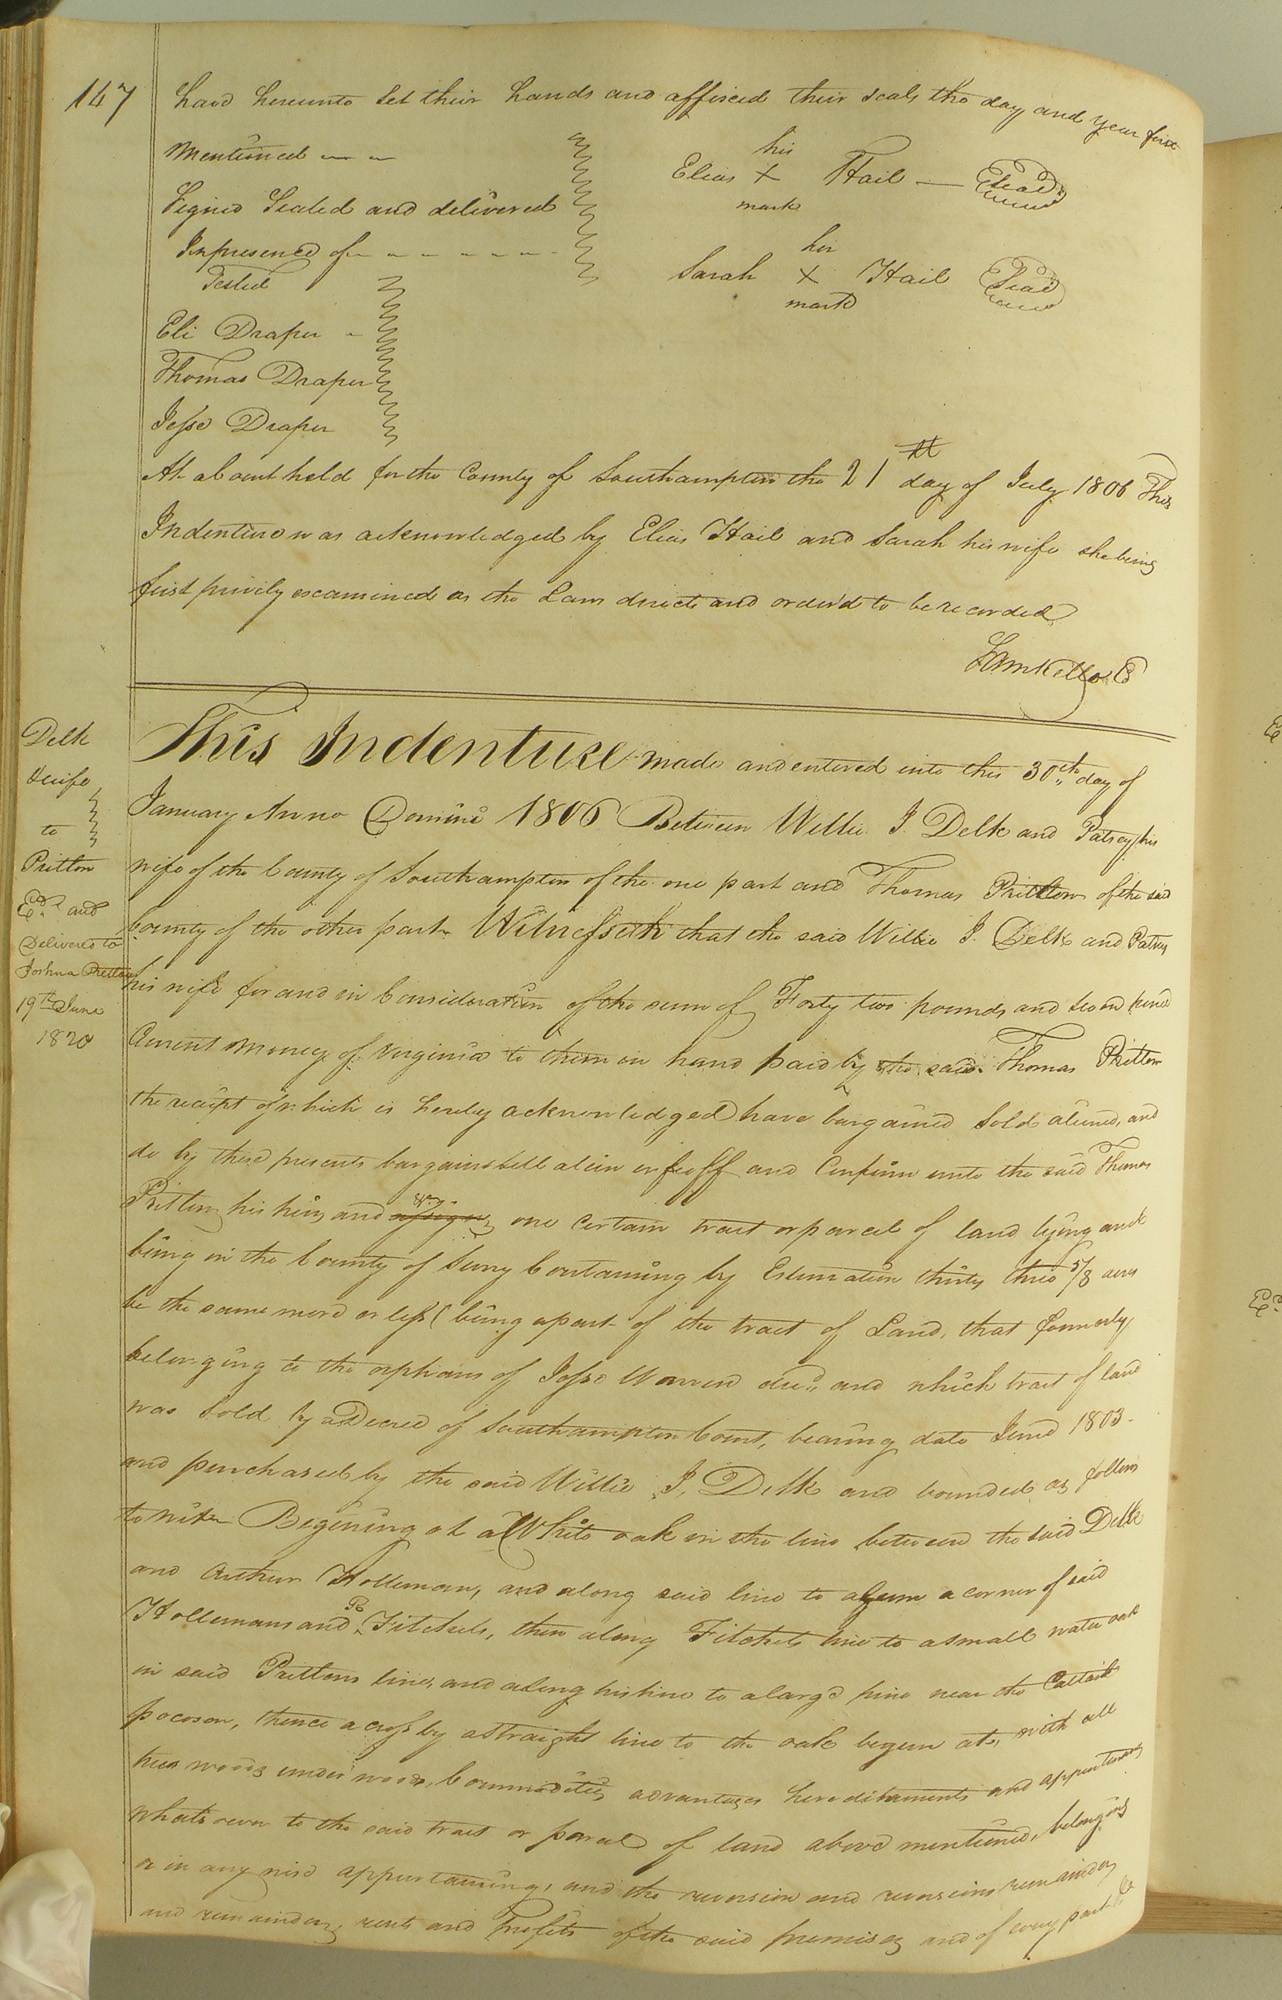 147
have hereunto set their hands and affixed their seals the day and year first
Mentioned
Signed Sealed and delivered
In presence of
Tested
Eli Draper
Thomas Draper
Jesse Draper
his
Elias X Hail Seal
mark
her
Sarah X Hail Seal
mark
At a Court held for the County of Southampton the 21st day of July 1806 This
Indenture was acknowledged by Elias Hail and Sarah his wife she being
first privily examined as the Law directs and order'd to be recorded
Delk
& wife
to
Pretlow
Ed. and
Delivered to
Joshua Pretlow
19th June
1820
This Indenture made and entered into this 30th day of
January Anno Domini 1806 Between Willie J. Delk and Patsey his
wife of the County of Southampton of the one part and Thomas Pretlow of the said
County of the other part Witnesseth that the said Willie J. Delk and Patsey
his wife for and in Consideration of the sum of Forty two pounds and
Current Money of Virginia to them in hand paid by the said Thomas Pretlow
the receipt of which is hereby acknowledged have bargained Sold aliened, and
do by these presents bargain sell alien enfeoff and Confirm unto the said Thomas
Pretlow his heirs and assigns one certain tract or parcel of land lying and
being in the County of Surry Containing by Estimation thirty three 5/8 acres
be the same more or less (being a part of the tract of Land, that formerly
belonging to the orphans of Jesse Warren decd. and which tract of land
was Sold by a Decree of Southampton Court, bearing date June 1803
and purchased by the said Willie J, Delk and bounded as follows
to wit Begining at a White oak in the line between the said Delk
and Arthur Holleman, and along said line to a gum a corner of said
Hollemans and Fitchets, then along Fitchets line to a small water oak
in said Pretlows line, and along his line to a large pine near the Cattail
pocoson, thence across by a straight line to the oak begun at, with all
trees woods under woods, Commodities advantages hereditaments and appurtenances
whatsoever to the said tract or parcel of land above mentioned, belonging
or in any wise appurtaining, and the reversion and reversions remainder
and remainders, rents and profits of the said premises and of every part